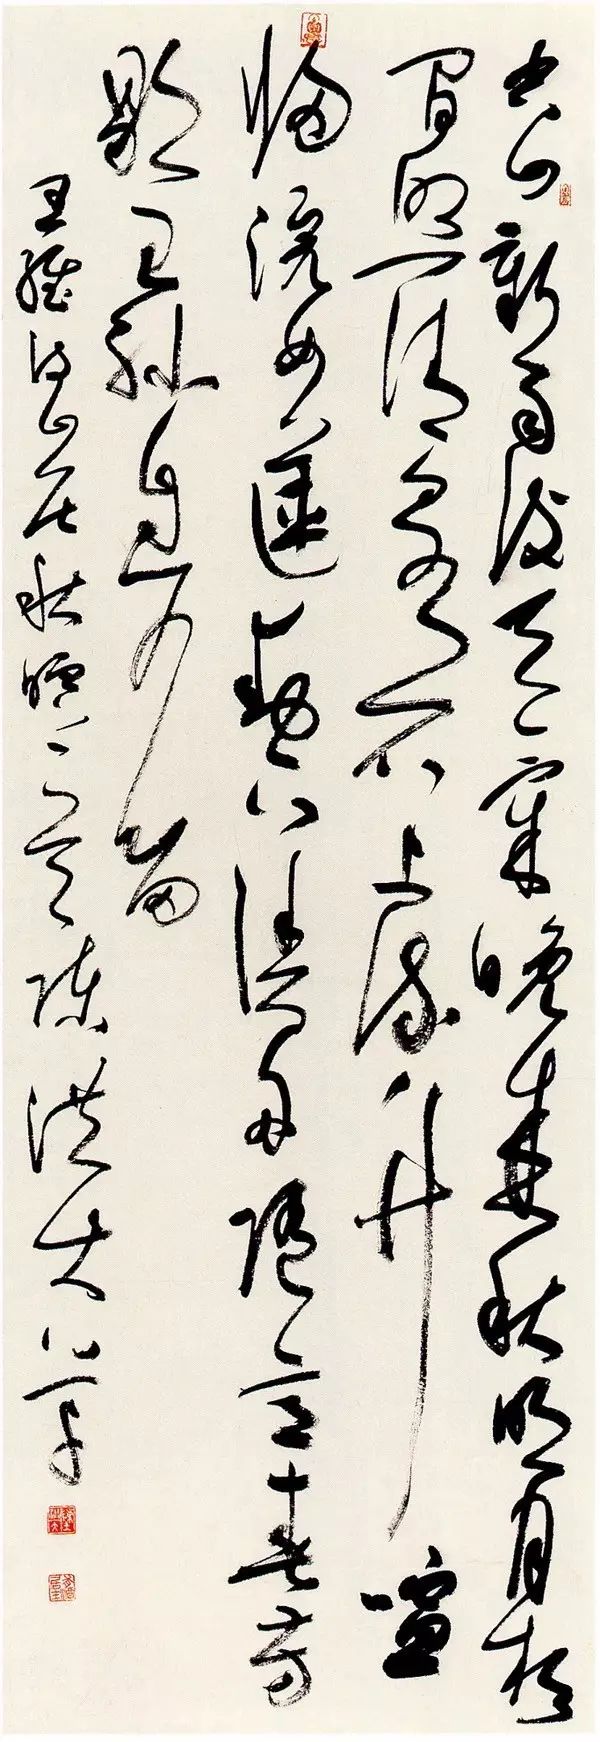 空山新雨後天氣晚来秋明月松
間照清泉石上流竹喧
歸浣女蓮動下漁舟隨意春芳
歇王孫自可留
王維詩山居秋暝陳洪